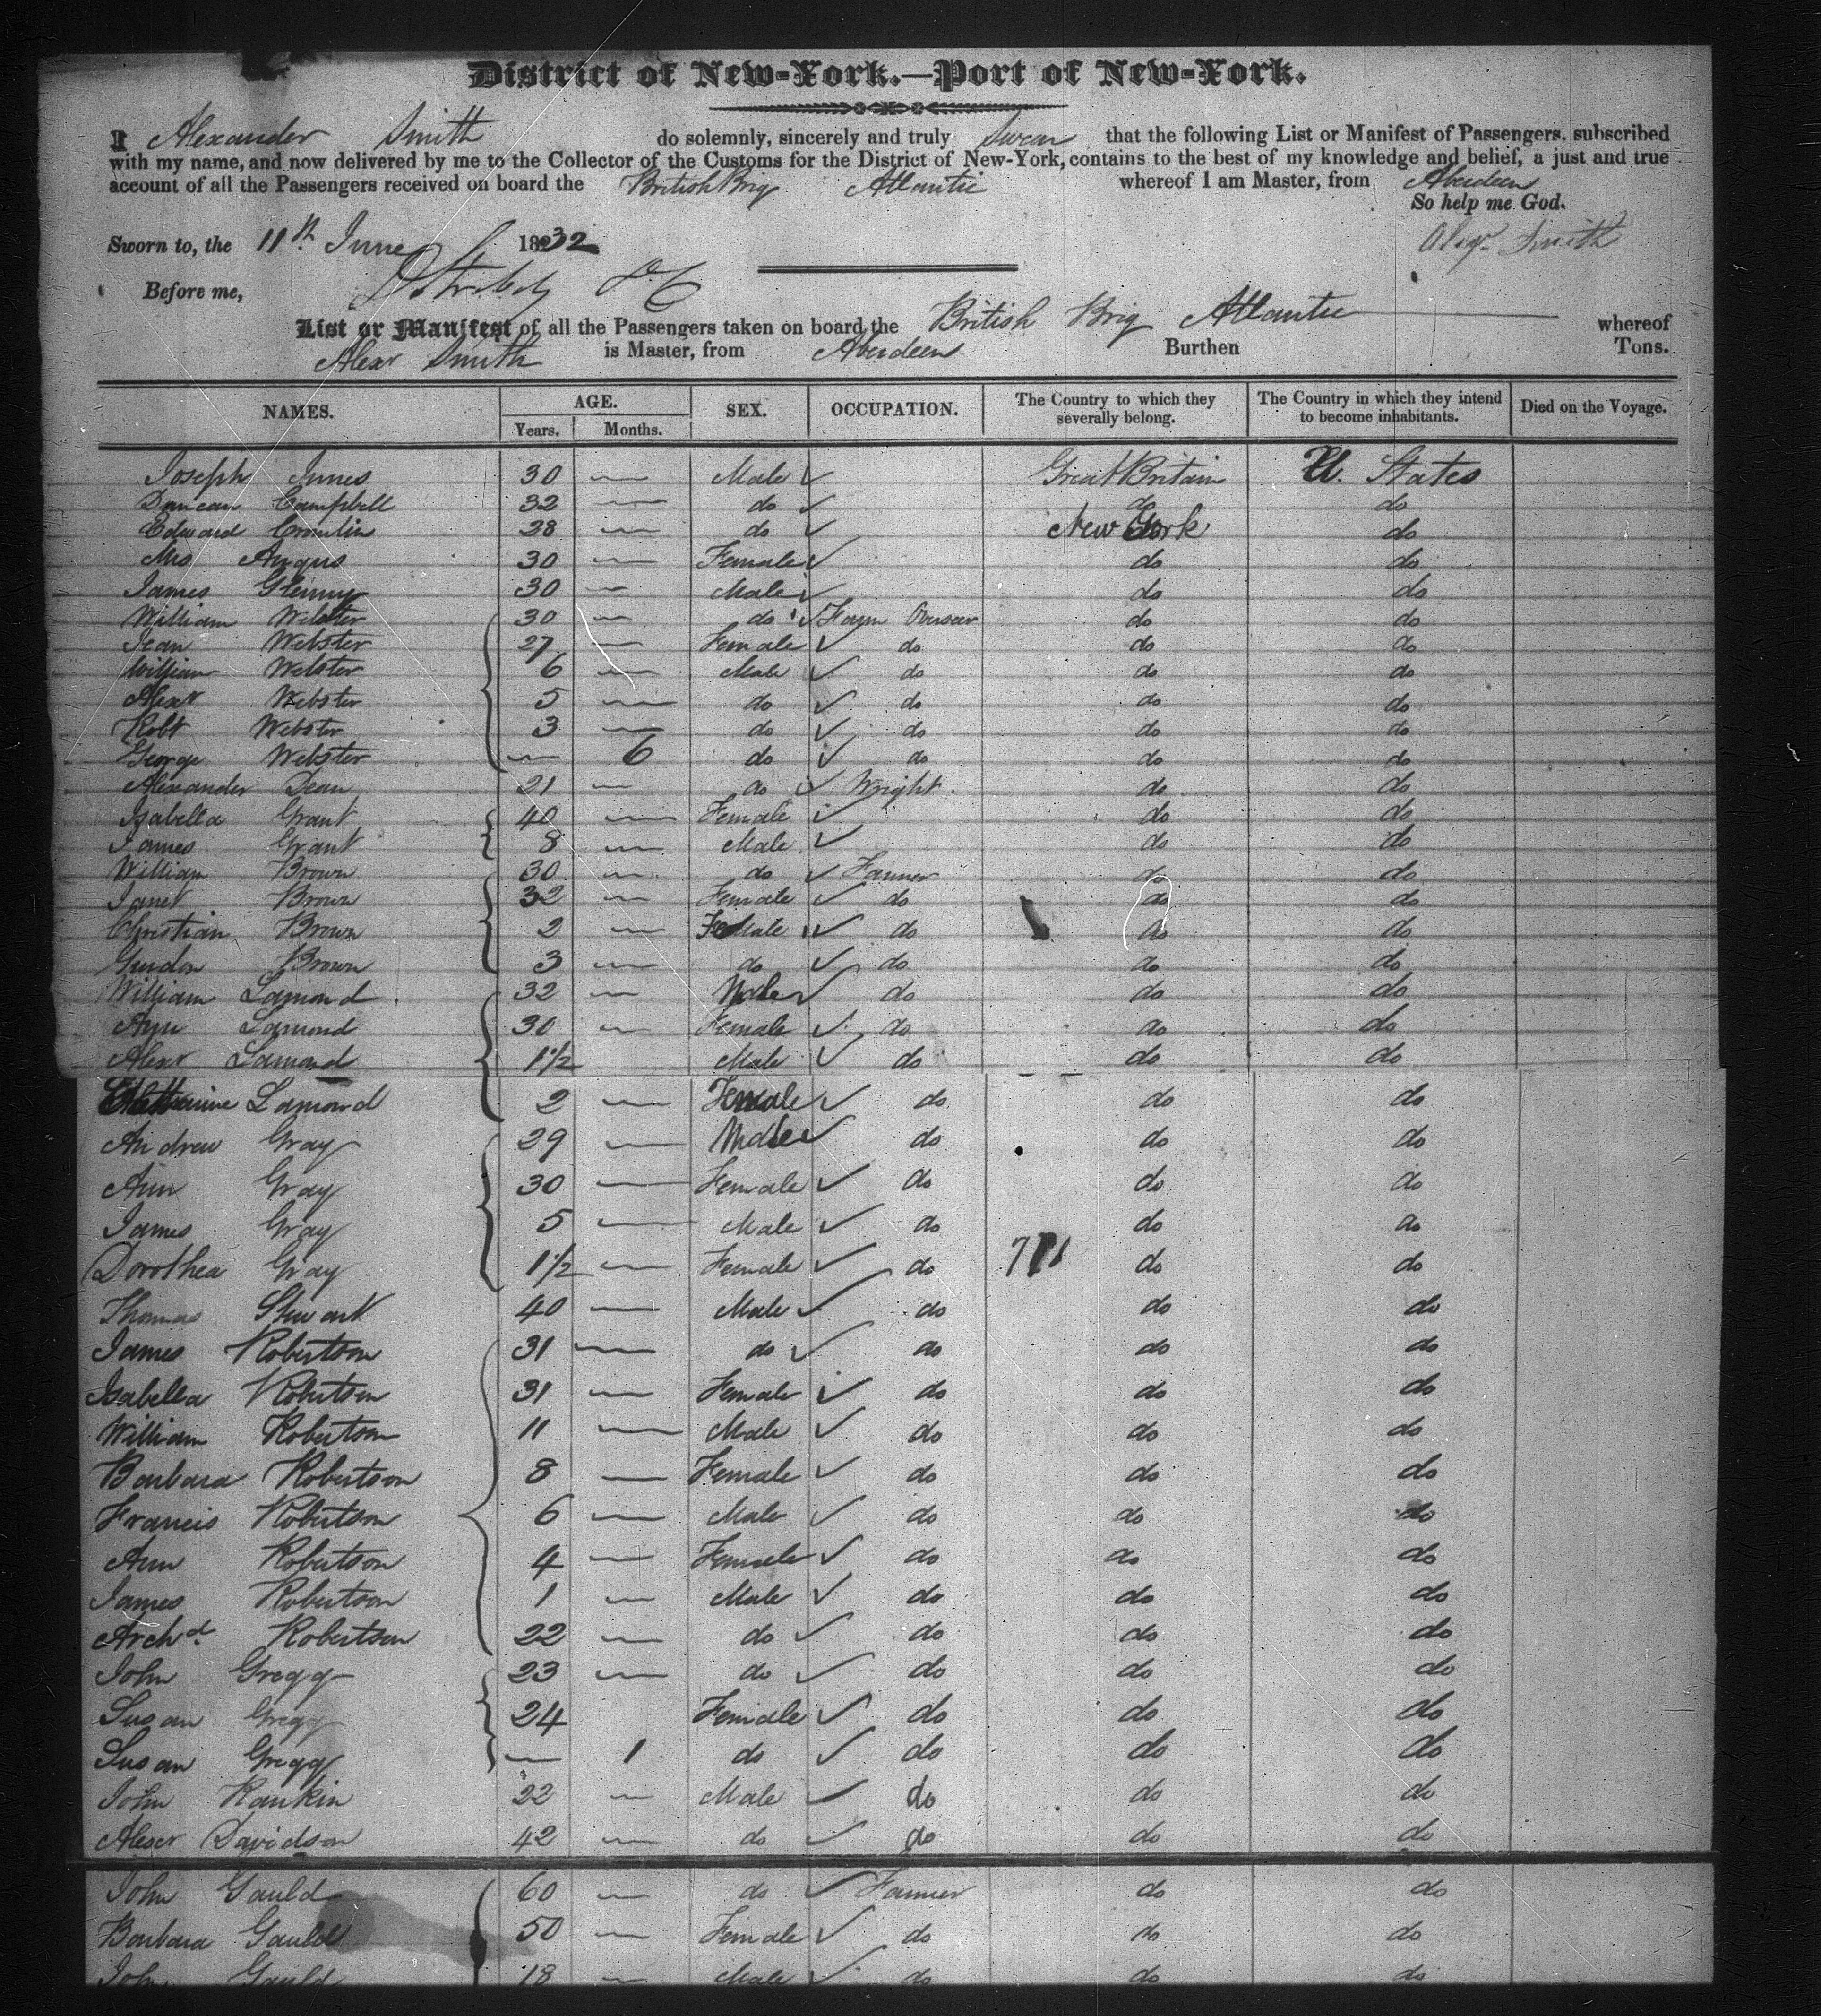 District of New-York.—Port of New-York.
I Alexander Smith do solemnly, sincerely and truly Swear that the following List or Manifest of Passengers, subscribed
with my name, and now delivered by me to the Collector of the Customs for the District of New-York, contains to the best of my knowledge and belief, a just and true
account of all the Passengers received on board the British Brig Atlantic whereof I am Master, from Aberdeen
So help me God.
Sworn to, the 11th June 1832 Alexr Smith
Before me,
List or Manifest of all the Passengers taken on board the British Brig Atlantic whereof
Alexr Smith is Master, from Aberdeen Burthen Tons.
NAMES. AGE. SEX. OCCUPATION. The Country to which they severally belong. The Country in which they intend to become inhabitants. Died on the Voyage.
Years. Months.
Joseph Innes 30 — Male Great Britain U. States
Duncan Campbell 32 — do do do
Edward Cromlin 28 — do New York do
Mrs Angus 30 — Female do do
James Glenny 30 — Male do do
William Webster 30 — do Farm Overseer do do
Jean Webster 27 — Female do do do
William Webster 6 — Male do do do
Alexr Webster 5 — do do do do
Robt Webster 3 — do do do do
George Webster — 6 do do do do
Alexander Dean 21 — do Wright do do
Isabella Grant 40 — Female do do
James Grant 8 — Male do do
William Brown 30 — do Farmer do do
Janet Brown 32 — Female do do do
Christian Brown 2 — Female do do do
Brown 3 — do do do do
William Lamond 32 — Male do do do
Ann Lamond 30 — Female do do do
Alexr Lamond 1 1/2 Male do do do
Lamond 2 — Female do do do
Andrew Gray 29 — Male do do do
Ann Gray 30 — Female do do do
James Gray 5 — Male do do do
Dorothea Gray 1 1/2 — Female do do do
Thomas Stewart 40 — Male do do do
James Robertson 31 — do do do do
Isabella Robertson 31 — Female do do do
William Robertson 11 — Male do do do
Barbara Robertson 8 — Female do do do
Francis Robertson 6 — Male do do do
Ann Robertson 4 — Female do do do
James Robertson 1 — Male do do do
Archd Robertson 22 — do do do do
John Gregg 23 — do do do do
Susan Gregg 24 Female do do do
Susan Gregg — 1 do do do do
John Rankin 22 — Male do do do
Alexr Davidson 42 — do do do do
John Gauld 60 — do Farmer do do
Barbara Gauld 50 — Female do do do
John Gauld 18 — Male do do do